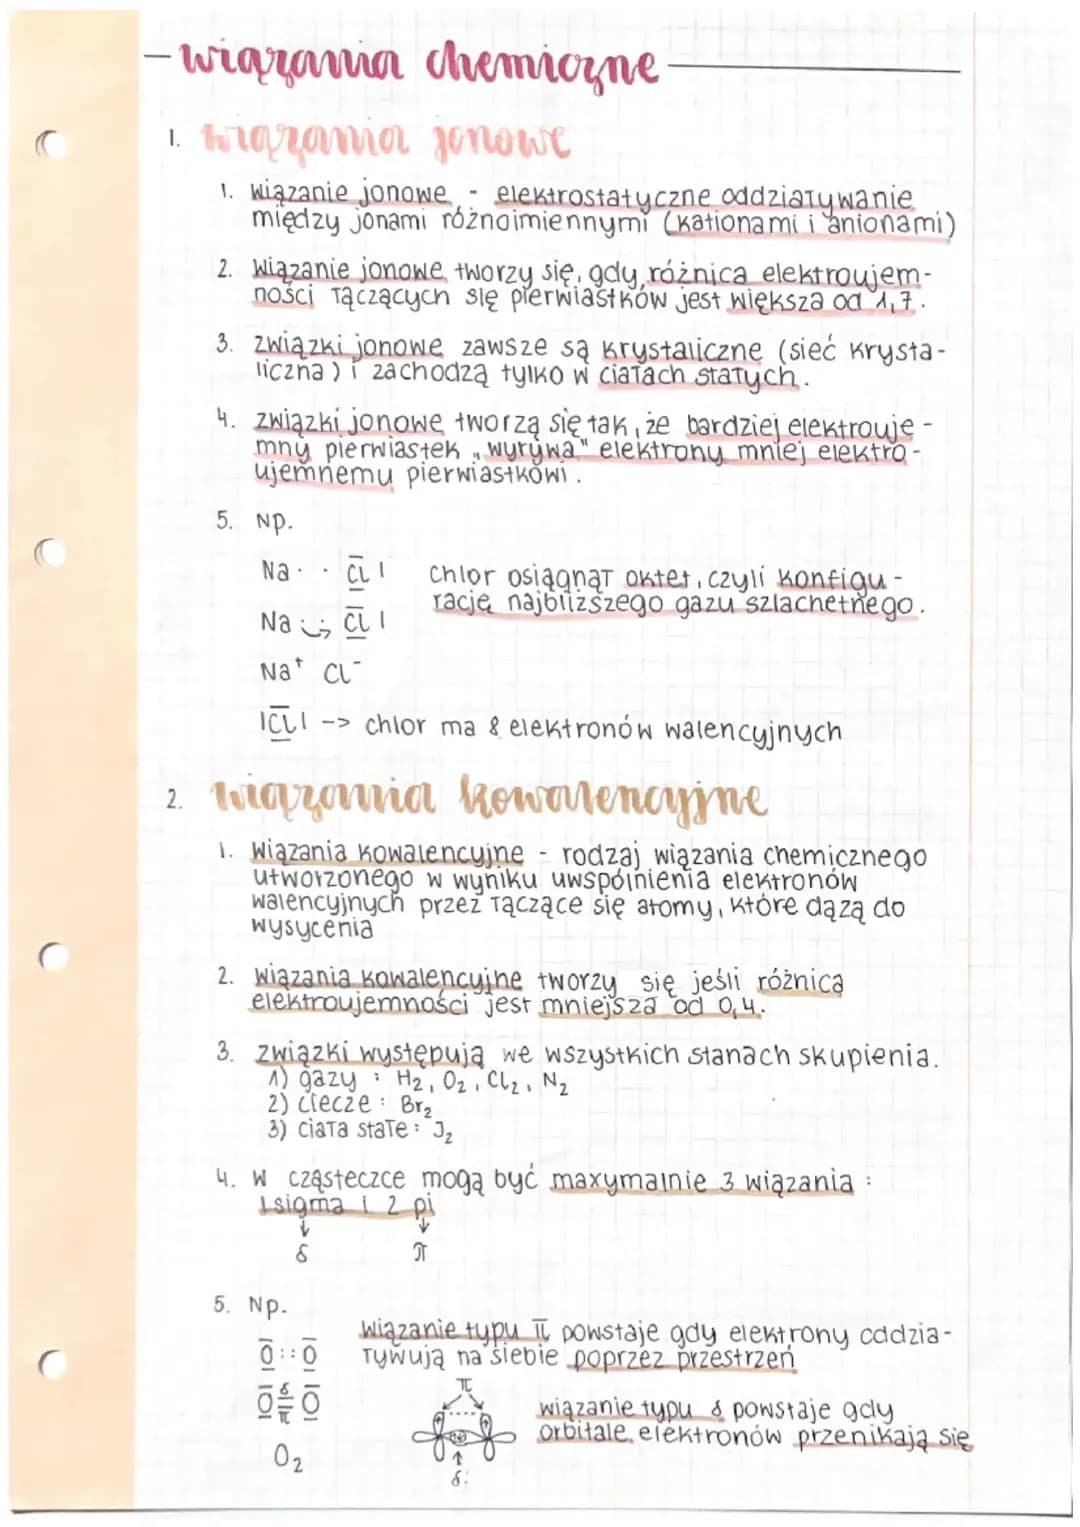 wiązania chemiczne
1. wiązania jonowe
1. Wiązanie jonowe - elektrostatyczne oddziaływanie
między jonami różnoimiennymi (kationami i anionami)
2. Wiązanie jonowe tworzy się, gdy różnica elektroujem-
ności łączących się pierwiastków jest większa od 1,7.
3. związki jonowe zawsze są krystaliczne (sieć krysta-
liczna) i zachodzą tylko w ciałach stałych.
4. związki jonowe tworzą się tak, że bardziej elektrouje-
mny pierwiastek „wyrywa" elektrony mniej elektro-
ujemnemu pierwiastkowi.
5. Np.
Na· ·Cl| chlor osiągnął oktet, czyli konfigu-
rację najbliższego gazu szlachetnego.
Na : Cl|
Na⁺ Cl⁻
|Cl| -> chlor ma 8 elektronów walencyjnych
2. wiązania kowalencyjne
1. Wiązania kowalencyjne - rodzaj wiązania chemicznego
utworzonego w wyniku uwspólnienia elektronów
walencyjnych przez łączące się atomy, które dążą do
wysycenia
2. Wiązania kowalencyjne tworzy się jeśli różnica
elektroujemności jest mniejsza od 0,4.
3. związki występują we wszystkich stanach skupienia.
1) gazy : H₂, O₂, Cl₂, N₂
2) ciecze : Br₂
3) ciała stałe : J₂
4. W cząsteczce mogą być maxymalnie 3 wiązania :
1 sigma i 2 pi
↓ ↓
δ π
5. Np.
Wiązanie typu π powstaje gdy elektrony oddzia-
O::O ływują na siebie poprzez przestrzeń
δ π
O=O wiązanie typu δ powstaje gdy
π orbitale elektronów przenikają się
O₂
δ: